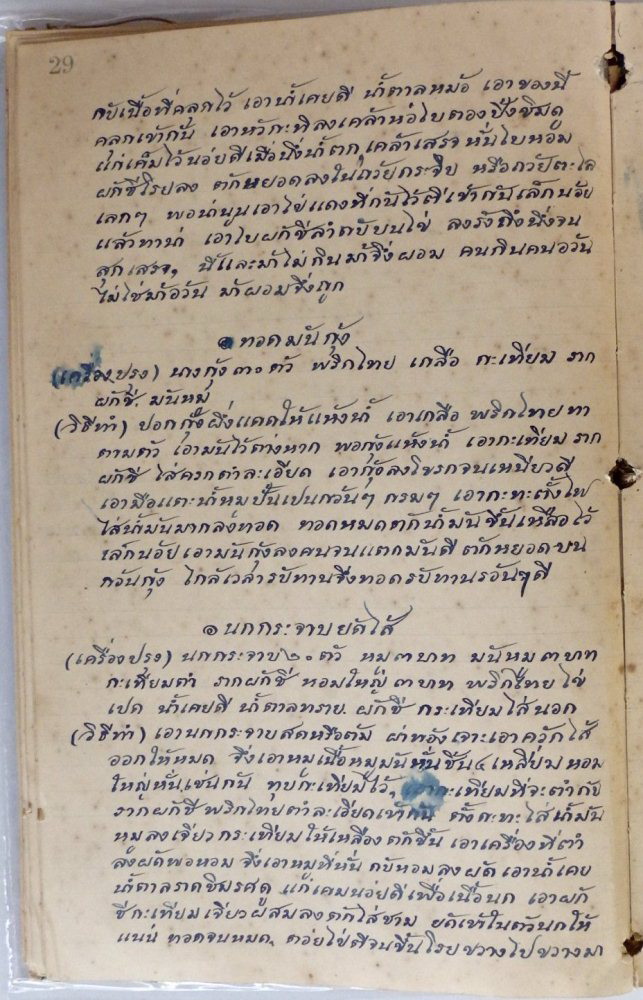 29
กับเนื้อที่คลุกไว้ เอาน้ำเคยดี น้ำตาลหม้อ เอาของนี้
คลุกเข้ากัน เอาหัวกะทิลงเคล้าห่อใบตองปิ้งชิมดู
แก่เค็มไว้นอยดีเมื่อนึ่งน้ำตก, เคล้าเสรจหั่นใบหอม
ผักชีโรยลง ตักหยอดลงในถวยกระจิบ หรือถวยตะไล
เลกๆ พอน่นูนเอาไข่แดงที่กันไว้ตีเข้ากันเล็กนอย
แล้วทาน่า เอาใบผักชีลำดับบนไข่ ลงรังถึงนึ่งจน
สุกเสรจ, นี้แมม้าไม่กินม้าจึ่งผอม คนกินคนอวน
ไม่ใช่ม้าอวน ม้าผอมจึ่งถูก
๑ ทอดมันกุ้ง
(เครื่องปรุง) นางกุ้ง ๓๐ ตัว พริกไทย เกลือ กะเทียม ราก
ผักชี. มันหมู
(วิธีทำ) ปอกกุ้งผึ่งแดดให้แห้งน้ำ เอาเกลือ พริกไทยทา
ตามตัว เอามันไว้ต่างหาก พอกุ้งแห้งน้ำ เอากะเทียม ราก
ผักชี ใส่ครกตำละเอียด เอากุ้งลงโขรกจนเหนียวดี
เอามือแตะน้ำหมูปั้นเปนกวันๆ กรมๆ เอากะทะตั้งไฟ
ใส่น้ำมันมากลงทอด ทอดหมดตักน้ำมันขึ้นเหลือไว้
เล็กนอย เอามันกุ้งลงคนจนแตกมันดี ตักหยอดบน
กวันกุ้ง ใกล้เวลารับทานจึงทอดรับทานรอนๆดี
๑ นกกระจาบยัดไส้
(เครื่องปรุง) นกกระจาบ ๒๐ ตัว หมู ๓ บาท มันหมู ๓ บาท
กะเทียมดำ รากผักชี หอมใหญ่ ๓ บาท พริกไทย ไข่
เปด น้ำเคยดี น้ำตาลทราย. ผักชี กระเทียมใส่นอก
(วิธีทำ) เอานกกระจาบสดหรือต้ม ผ่าท้องเจาะเอาควักไส้
ออกให้หมด จึ่งเอาหมูเนื้อหมูมันหั่นชิ้น ๔ เหลี่ยม หอม
ใหญ่หั่นเช่นกัน ทุบกะเทียมไว้, เอากะเทียมที่จะตำกับ
รากผักชี พริกไทยตำละเอียดเข้ากัน ตั้งกะทะใส่น้ำมัน
หมูลงเจียวกระเทียมให้เหลืองตักขึ้น เอาเครื่องที่ตำ
ลงผัดพอหอม จึ่งเอาหมูที่หั่น กับหอมลงผัด เอาน้ำเคย
น้ำตาลราดชิมรศดู แก่เคมนอยดีเพื่อเนื้อนก เอาผัก
ชีกะเทียมเจียวผสมลงตักใส่ชาม ยัดเข้าในตัวนกให้
แน่น ทอดจนหมด. ตอยไข่ตีจนขึ้นโรยขวางไปขวางมา